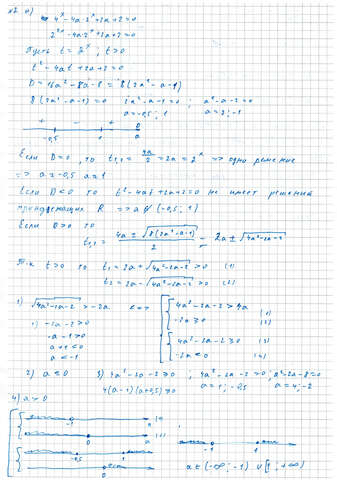 №2 а)
4^x - 4a·2^x + 2a + 2 = 0
2^{2x} - 4a·2^x + 2a + 2 = 0
Пусть t = 2^x ; t > 0
t² - 4at + 2a + 2 = 0
D = 16a² - 8a - 8 = 8(2a² - a - 1)
8(2a² - a - 1) = 0 2a² - a - 1 = 0 ; a² - a - 2 = 0
a = -0,5 ; 1 a = 2 ; -1
+ - +
-0,5 1 a
Если D = 0, то t_{1,2} = 4a/2 = 2a = 2^x => одно решение
=> a = -0,5 a = 1
Если D < 0 то t² - 4at + 2a + 2 = 0 не имеет решений
R => a (-0,5; 1)
Если D > 0 то
t_{1,2} = (4a ± √8(2a² - a - 1))/2 = 2a ± √4a² - 2a - 2
Т.к t > 0 то t_1 = 2a + √4a² - 2a - 2 > 0 (1)
t_2 = 2a - √4a² - 2a - 2 > 0 (2)
1) √4a² - 2a - 2 > -2a <=>
4a² - 2a - 2 > 4a
-2a ≥ 0
4a² - 2a - 2 ≥ 0 (3)
-2a < 0 (4)
1) -2a - 2 > 0
-a - 1 > 0
a + 1 < 0
a < -1
2) a ≤ 0
3) 4a² - 2a - 2 ≥ 0 ; 4a² - 2a - 2 = 0 ; a² - 2a - 8 = 0
4(a - 1)(a + 0,5) ≥ 0 a = 1 ; -0,5 a = 4 ; -2
4) a > 0
-1 a
0 a
-0,5 1
0
-1 1
a ∈ (-∞; -1) ∪ [1; +∞)